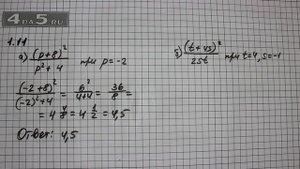 4DA5.RU
1.11
а) (p+8)²/(p²+4) при p=-2
(-2+8)²/((-2)²+4) = 6²/(4+4) = 36/8 =
= 4 4/8 = 4 1/2 = 4,5
Ответ: 4,5
б) (t+4s)²/(2st) при t=4, s=-1